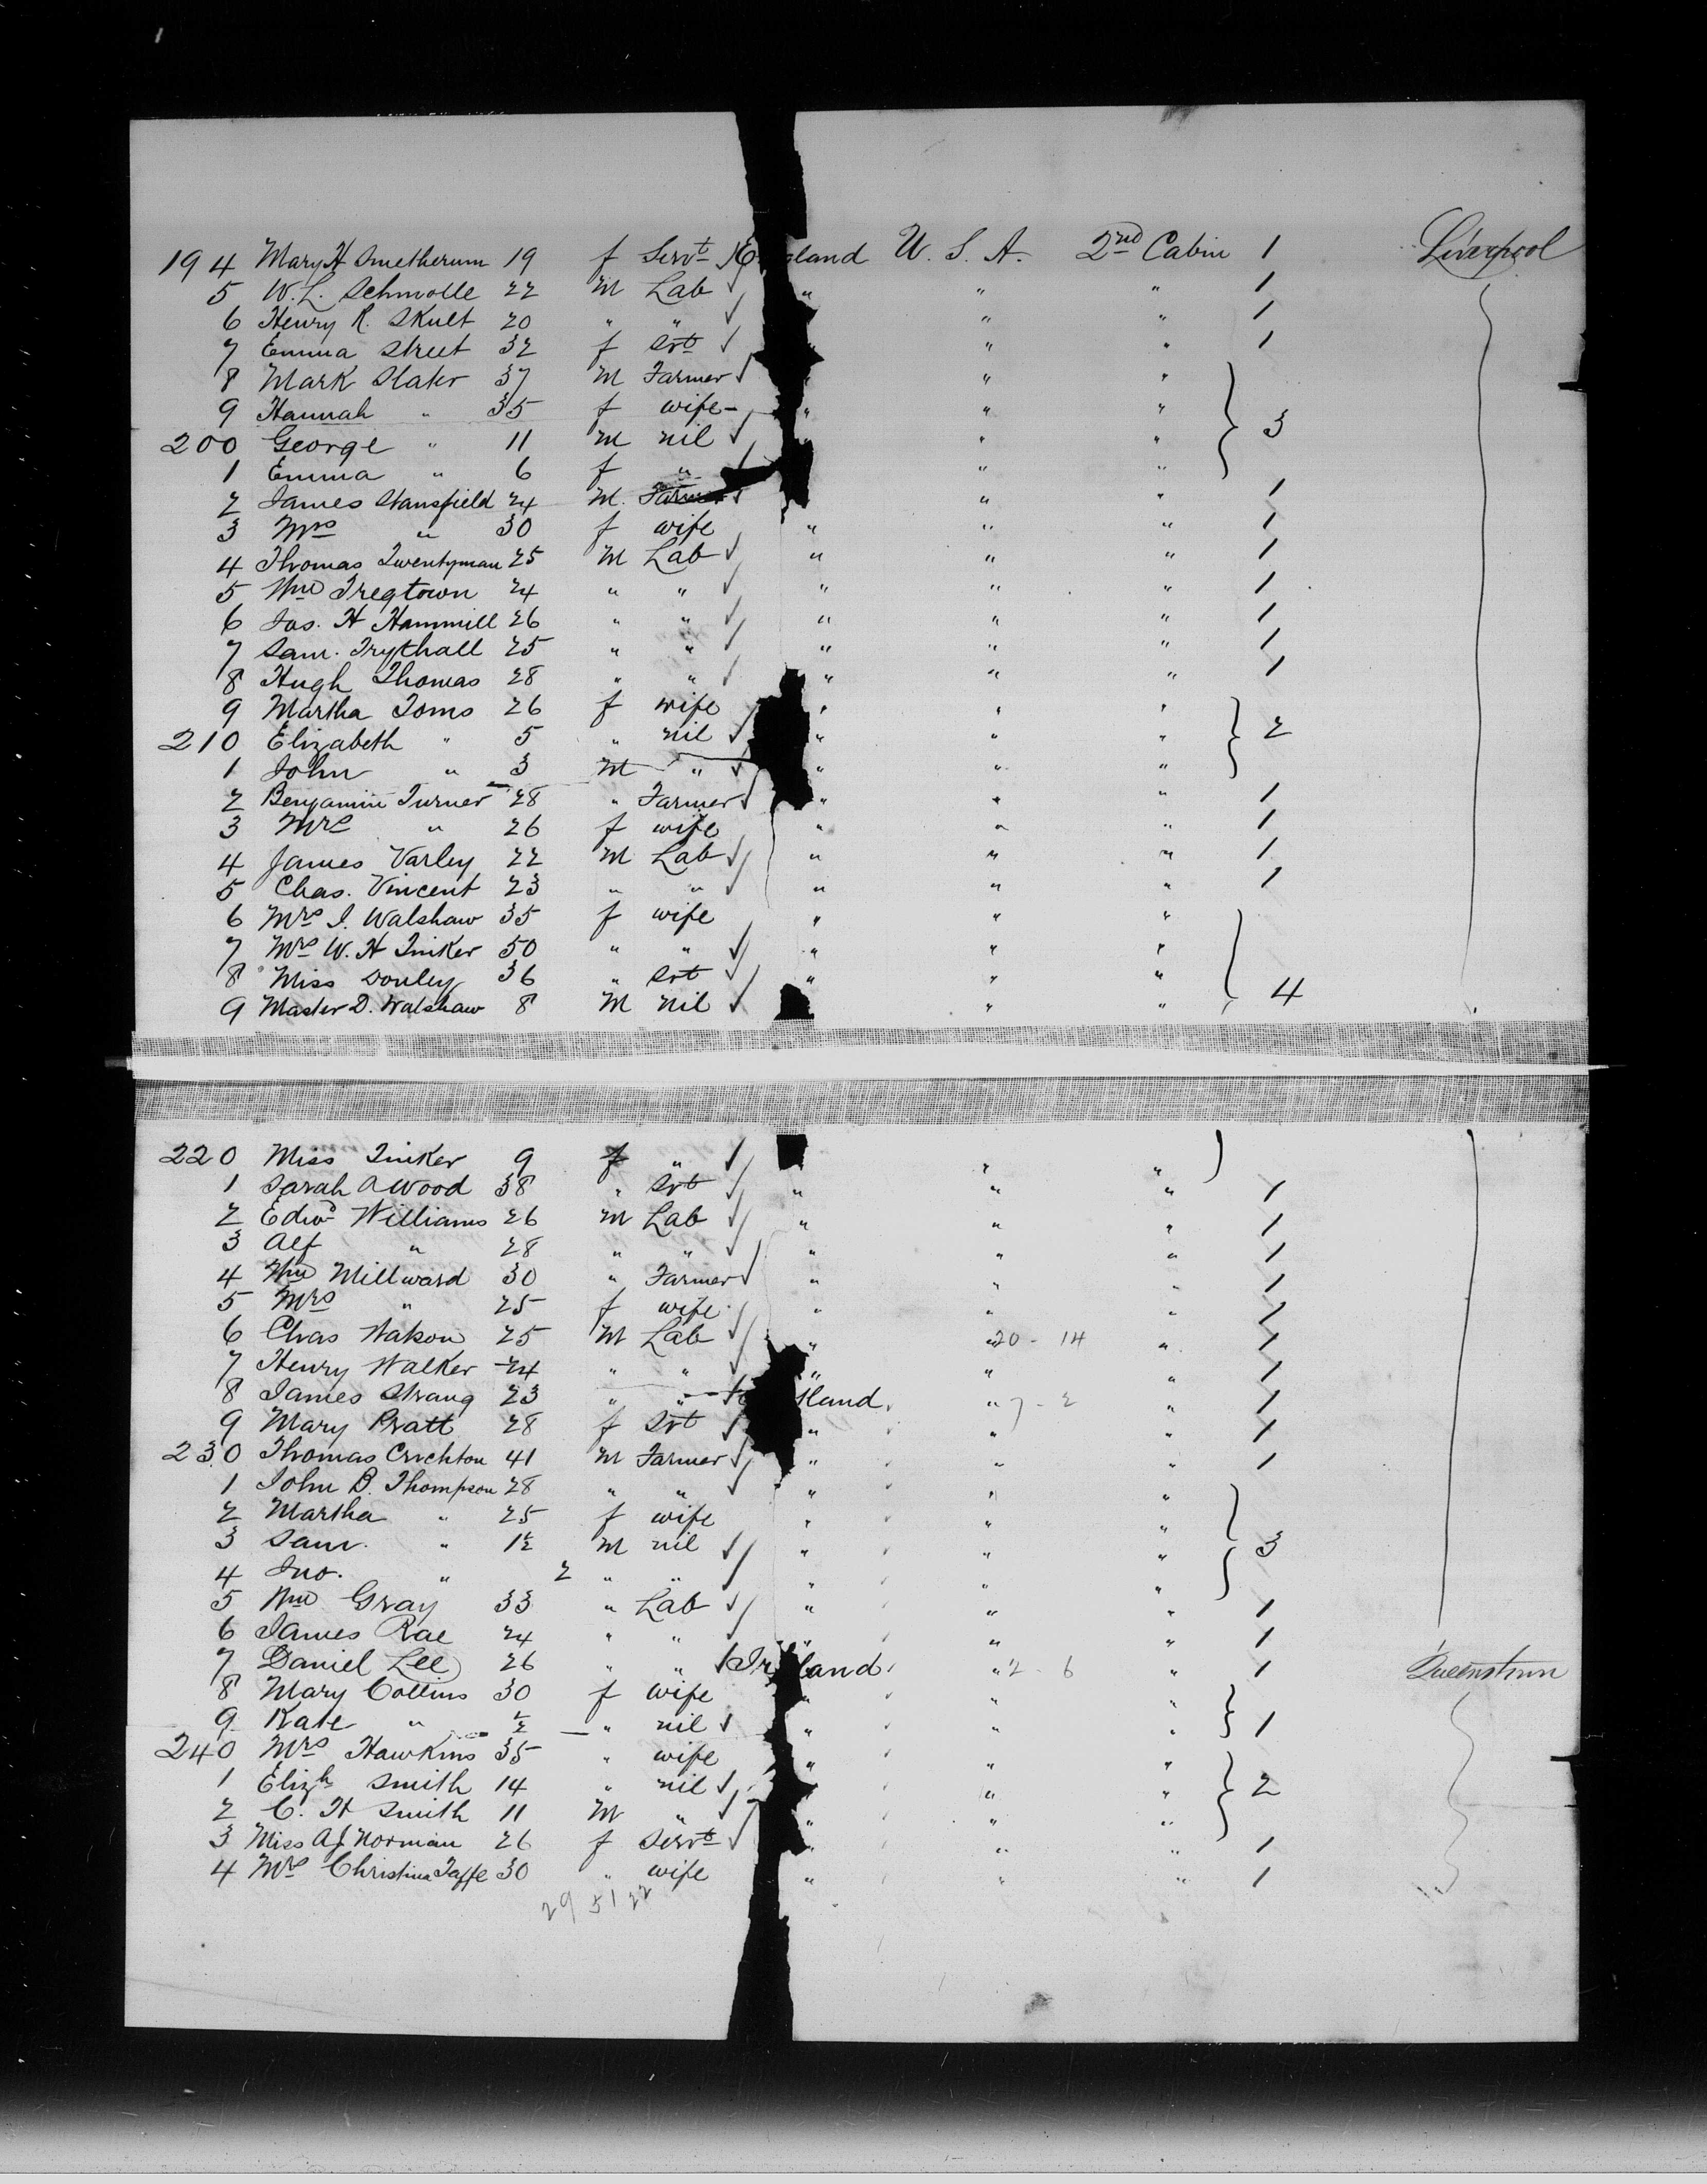 194 Mary H Smetherum 19 f Servt England U. S. A. 2nd Cabin 1 Liverpool
5 W. L. Schmolle 22 M Lab " " " 1
6 Henry R. Skult 20 " " " " 1
7 Emma Street 32 f Svt " " " 1
8 Mark Slater 37 M Farmer " " "
9 Hannah " 35 f wife " " " 3
200 George " 11 M nil " "
1 Emma " 6 f " " "
2 James Stansfield 24 M. Farmer " " 1
3 Mrs " 30 f wife " " " 1
4 Thomas Twentyman 25 M Lab " " " 1
5 Wm Tregtown 24 " " " " " 1
6 Jas. H Hammill 26 " " " " " 1
7 Sam. Trythall 25 " " " " " 1
8 Hugh Thomas 28 " " " " " 1
9 Martha Toms 26 f wife " " "
210 Elizabeth " 5 " nil " " " 2
1 John " 3 M " " " "
2 Benjamin Turner 28 " Farmer " " " 1
3 Mrs " 26 f wife " " " 1
4 James Varley 22 M Lab " " " 1
5 Chas. Vincent 23 " " " " " 1
6 Mrs J. Walshaw 35 f wife " " "
7 Mrs W. H Tinker 50 " " " " "
8 Miss Douley 36 " Svt " " "
9 Master D. Walshaw 8 M nil " " 4
220 Miss Tinker 9 f " " "
1 Sarah A Wood 38 " Svt " " " 1
2 Edwd Williams 26 M Lab " " " 1
3 Alf " 28 " " " " " 1
4 Wm Millward 30 " Farmer " " " 1
5 Mrs " 25 f wife " " " 1
6 Chas Watson 25 M Lab " " 20 - 14 " 1
7 Henry Walker 24 " " " " " 1
8 James Strang 23 " " tland " 7 - 2 " 1
9 Mary Pratt 28 f Svt " " " 1
230 Thomas Crichton 41 M Farmer " " " 1
1 John B. Thompson 28 " " " " "
2 Martha " 25 f wife " " "
3 Sam. " 1½ M nil " " " 3
4 Jno. " 2 " " " " "
5 Wm Gray 33 " Lab " " " 1
6 James Rae 24 " " " " " 1
7 Daniel Lee 26 " " Ireland " 2 - 6 " 1 Queenstown
8 Mary Collins 30 f wife " " "
9 Kate " ½ " nil " " " 1
240 Mrs Hawkins 35 " wife " " "
1 Elizh Smith 14 " nil " " 2
2 C. H Smith 11 M " " " "
3 Miss A J Norman 26 f Servt " " " 1
4 Mrs Christina Taffe 30 " wife " " " 1
29 51 22